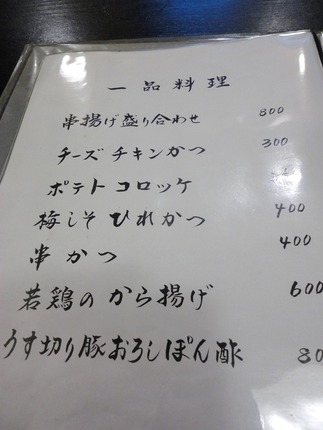 一品料理
串揚げ盛り合わせ 800
チーズチキンかつ 300
ポテトコロッケ
梅しそひれかつ 400
串かつ 400
若鶏のから揚げ 600
うす切り豚おろしぽん酢 80